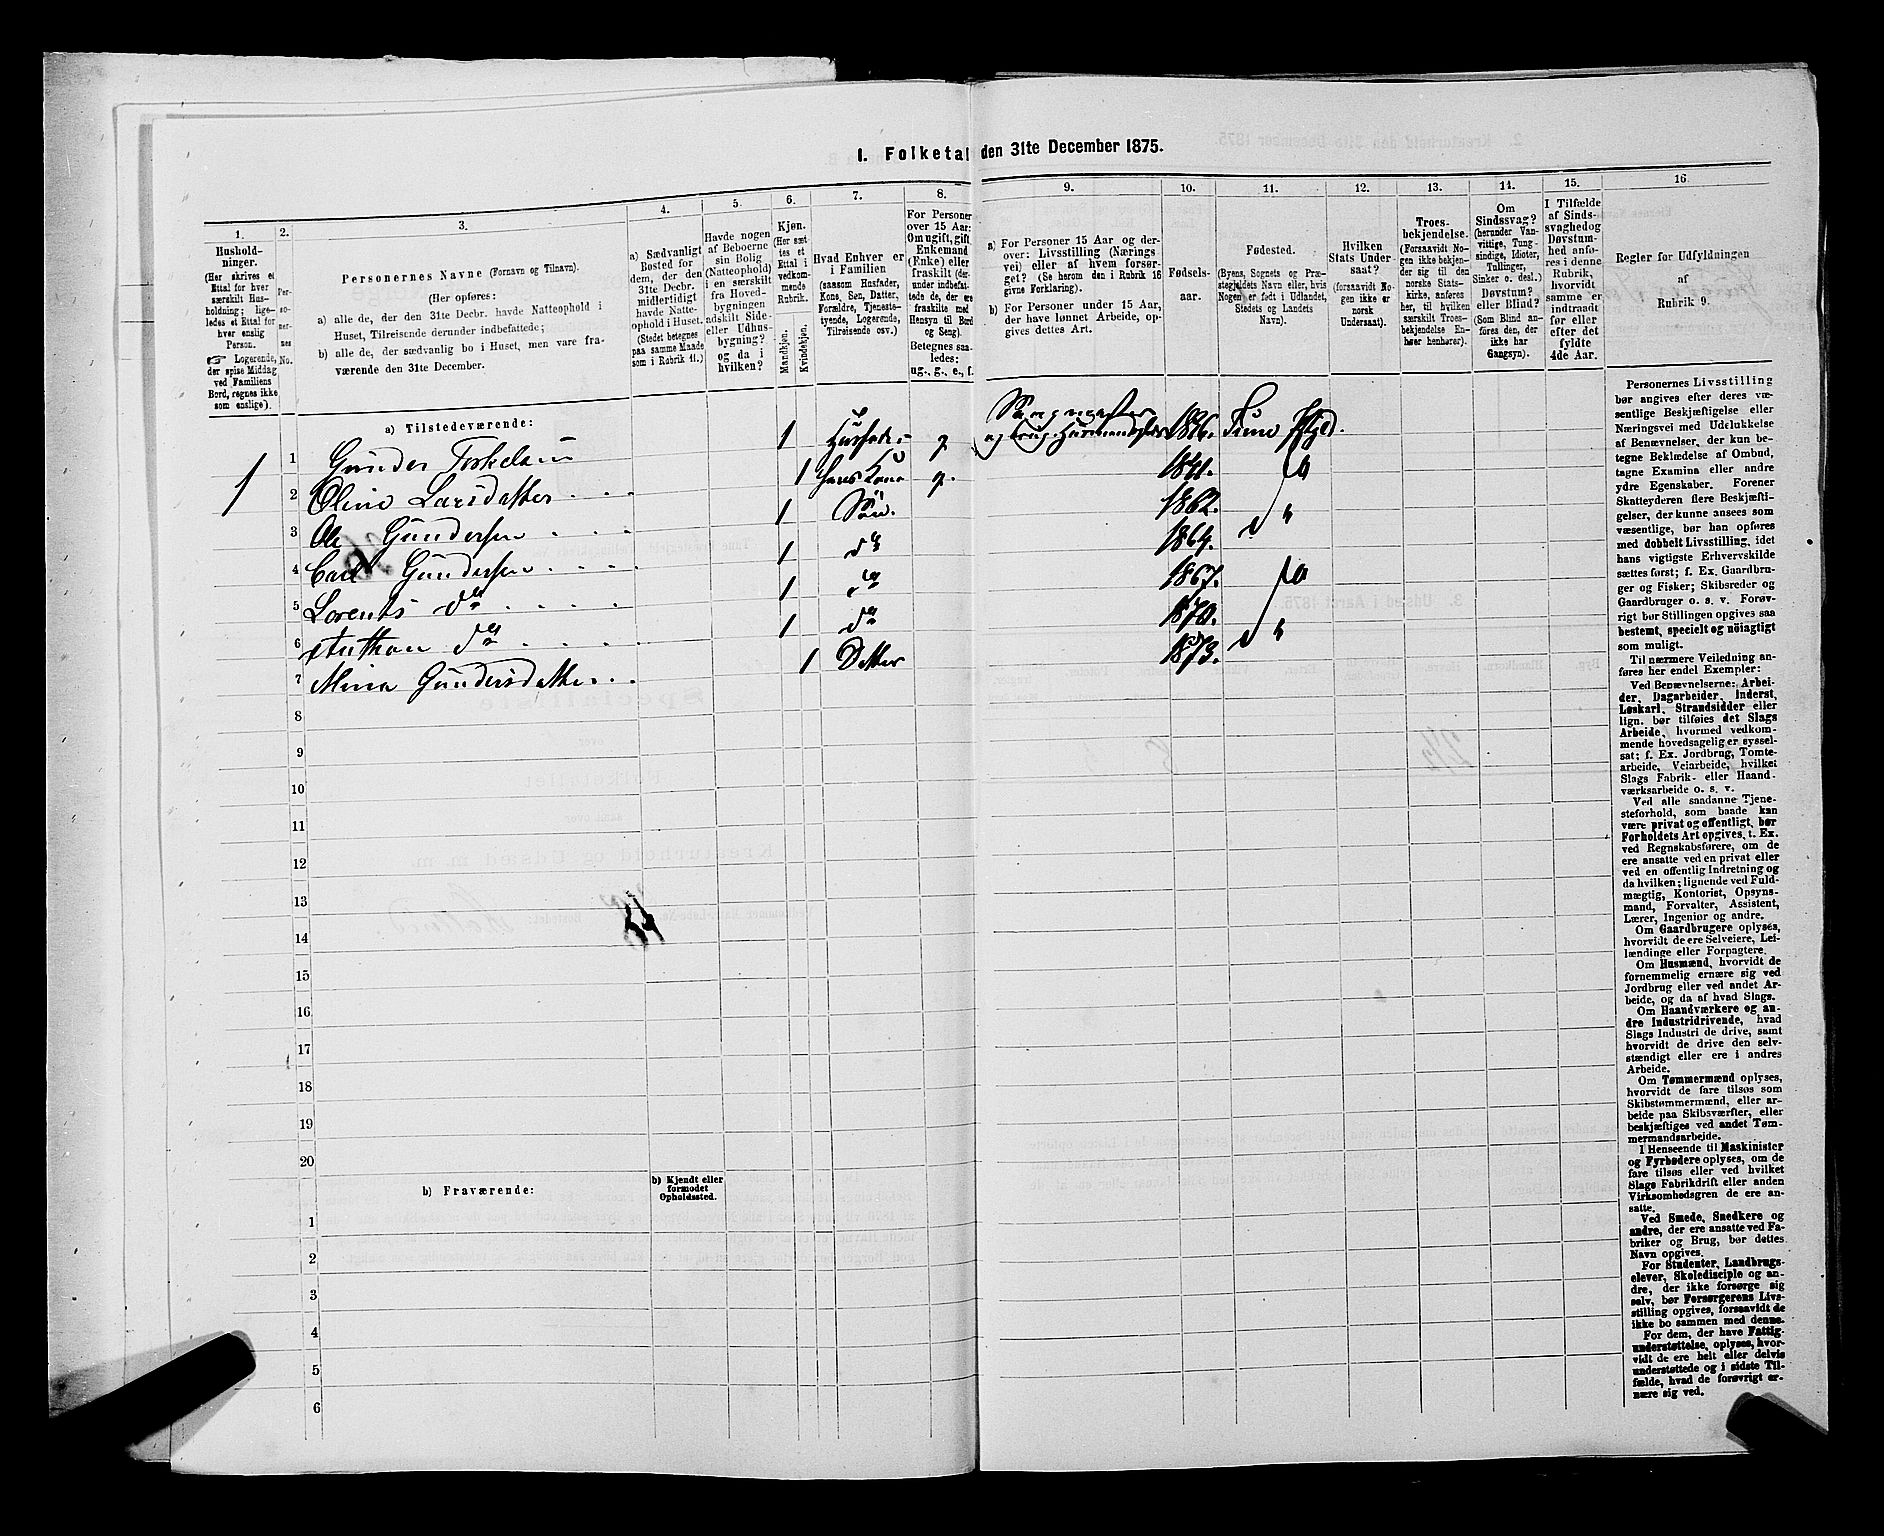 I. Folketal den 31te December 1875.
1. 2. 3. 4. 5. 6. 7. 8. 9. 10. 11. 12. 13. 14. 15. 16.
Hushold-
ninger.
(Her skrives et
Ettal for hver
særskilt Hus-
holdning; lige-
ledes et Ettal for
hver enslig
Person.
☞ Logerende,
der spise Middag
ved Familiens
Bord, regnes ikke
som enslige).
Per-
so-
ner-
nes
No.
Personernes Navne (Fornavn og Tilnavn).
(Her opføres:
a) alle de, der den 31te Decbr. havde Natteophold i
Huset, Tilreisende derunder indbefattede;
b) alle de, der sædvanlig bo i Huset, men vare fra-
værende den 31te December.
a) Sædvanligt
Bosted for
dem, der den
31te Decbr.
midlertidigt
havde Natte-
ophold i Huset.
(Stedet betegnes
paa samme Maade
som i Rubrik 11.)
Havde nogen
af Beboerne
sin Bolig
(Natteophold)
i en særskilt
fra Hoved-
bygningen
adskilt Side-
eller Udhus-
bygning?
og da i
hvilken?
Kjøn.
(Her sæt-
tes et
Ettal i
vedkom-
mende
Rubrik.
Mandkjøn.
Kvindekjøn.
Hvad Enhver er
i Familien
(saasom Husfader,
Kone, Søn, Datter,
Forældre, Tjeneste-
tyende, Logerende,
Tilreisende osv.)
For Personer
over 15 Aar:
Om ugift, gift,
Enkemand
(Enke) eller
fraskilt (der-
under indbefat-
tede de, der ere
fraskilte med
Hensyn til Bord
og Seng).
Betegnes saa-
ledes:
ug., g., e., f.
a) For Personer 15 Aar og der-
over: Livsstilling (Nærings
vei) eller af hvem forsør-
get? (Se herom den i Rubrik 16
givne Forklaring).
b) For Personer under 15 Aar,
der have lønnet Arbeide, op-
gives dettes Art.
Fødsels-
aar.
Fødested.
(Byens, Sognets og Præ-
stegjeldets Navn eller, hvis
Nogen er født i Udlandet,
Stedets og Landets
Navn).
Hvilken
Stats Under-
saat?
(forsaavidt No-
gen ikke er
norsk
Undersaat).
Troes-
bekjendelse.
(Forsaavidt No-
gen ikke bekjen-
der sig til den
norske Stats-
kirke, anføres
her, til hvilken
særskilt Troes-
bekjendelse En-
hver henhører).
Om
Sindssvag?
(herunder Van-
vittige, Tung-
sindige, Idioter,
Tullinger,
Sinker o. desl.)
Døvstum?
eller Blind?
(Som Blind an-
føres den, der
ikke har
Gangsyn).
I Tilfælde
af Sinds-
svaghed og
Døvstum-
hed anfø-
res i denne
Rubrik,
hvorvidt
samme er
indtraadt
før eller
efter det
fyldte
4de Aar.
Regler før Udfyldningen
af
Rubrik 9.
a) Tilstedeværende:
1 1 Gunder Torkelsen 1 Husfader g og brug. 1836. Tune Pgd.
2 Oline Larsdatter 1 hans Kone g. 1841.
3 Ole Gundersen 1 Søn. 1862.
4 Carl Gundersen 1 do 1864.
5 Lorents do 1 do 1867.
6 Anthon do 1 do 1870.
7 Mina Gundersdatter 1 Datter 1873.
8
9
10
11
12
13
14
15
16
17
18
19
20
b) Fraværende:
b) Kjendt eller
formodet
Opholdssted.
1
2
3
4
5
6
Personernes Livsstilling
bør angives efter deres væ-
sentlige Beskjæftigelse eller
Næringsvei med Udelukkelse
af Benævnelser, der kun be-
tegne Beklædelse af Ombud,
tagne Examina eller andre
ydre Egenskaber. Forener
Skatteyderen flere Beskjæfti-
gelser, der kunne ansees som
væsentlige, bør han opføres
med dobbelt Livsstilling, idet
hans vigtigste Erhvervskilde
sættes først; f. Ex. Gaardbru-
ger og Fisker; Skibsreder og
Gaardbruger o. s. v. Forøv-
rigt bør Stillingen opgives saa
bestemt, specielt og nöiagtigt
som muligt.
Til nærmere Veiledning an-
føres her endel Exempler:
Ved Benævnelserne: Arbei-
der, Dagarbeider, Inderst,
Løskarl, Strandsidder eller
lign. bør tilføies det Slags
Arbeide, hvormed vedkom-
mende hovedsagelig er syssel-
sat; f. Ex. Jordbrug, Tomte-
arbeide, Veiarbeide, hvilket
Slags Fabrik- eller Haand-
værksarbeide o. s. v.
Ved alle saadanne Tjene-
steforhold, som baade kan
være privat og offentligt, bør
Forholdets Art opgives, t. Ex.
ved Regnskabsførere, om de
ere ansatte ved en privat eller
ved en offentlig Indretning og
da hvilken; lignende ved Fuld-
mægtig, Kontorist, Opsyns-
mand, Forvalter, Assistent,
Lærer, Ingeniør og andre.
Om Gaardbrugere oplyses,
hvorvidt de ere Selveiere, Lei-
lændinge eller Forpagtere.
Om Husmænd, hvorvidt de
fornemmelig ernære sig ved
Jordbrug eller ved andet Ar-
beide, og da af hvad Slags.
Om Haandværkere og an-
dre Industridrivende, hvad
Slags Industri de drive, samt
hvorvidt de drive den selv-
stændigt eller ere i andres
Arbeide.
Om Tømmermænd oplyses,
hvorvidt de fare tilsøs som
Skibstømmermænd, eller ar-
beide paa Skibsværfter, eller
beskjæftiges ved andet Tøm-
mermandsarbeide.
I Henseende til Maskinister
og Fyrbødere oplyses, om de
fare tilsøs eller ved hvilket
Slags Fabrikdrift eller anden
Virksomhedsgren de ere an-
satte.
Ved Smede, Snedkere og
andre, der ere ansatte ved Fa-
briker og Brug, bør dettes
Navn opgives.
For Studenter, Landbrugs-
elever, Skoledisciple og an-
dre, der ikke forsørge sig
selv, bør Forsørgerens Livs-
stilling opgives, forsaavidt de
ikke bo sammen med denne.
For dem, der have Fattig-
understøttelse, oplyses, hvor-
vidt de ere helt eller delvis
understøttede og i sidste Til-
fælde, hvad de forøvrigt er-
nære sig ved.